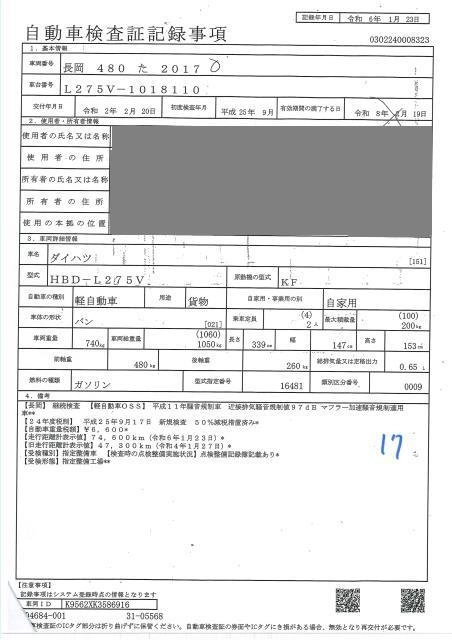 記録年月日 令和 6年 1月 23日
自動車検査証記録事項
0302240008323
1. 基本情報
車両番号 長岡 480 た 2017
車台番号 L275V-1018110
交付年月日 令和 2年 2月 20日 初度検査年月 平成 25年 9月 有効期間の満了する日 令和 8年 月 19日
2. 使用者・所有者情報
使用者の氏名又は名称
使用者の住所
所有者の氏名又は名称
所有者の住所
使用の本拠の位置
3. 車両詳細情報
車名 ダイハツ [151]
型式 HBD-L275V 原動機の型式 KF
自動車の種別 軽自動車 用途 貨物 自家用・事業用の別 自家用
車体の形状 バン [021] 乗車定員 (4) 2人 最大積載量 (100) 200kg
車両重量 740kg 車両総重量 (1060) 1050kg 長さ 339cm 幅 147cm 高さ 153cm
前軸重 480kg 後軸重 260kg 総排気量又は定格出力 0.65 L
燃料の種類 ガソリン 型式指定番号 16481 類別区分番号 0009
4. 備考
【長岡】 継続検査 【軽自動車OSS】 平成11年騒音規制車 近接排気騒音規制値97dB マフラー加速騒音規制適用
車**
【24年度税制】 平成25年9月17日 新規検査 50%減税措置済み*
【自動車重量税額】 ¥6,600*
【走行距離計表示値】 74,600km (令和6年1月23日)*
【旧走行距離計表示値】 47,300km (令和4年1月27日)*
【受検種別】 指定整備車 【検査時の点検整備実施状況】 点検整備記録簿記載あり*
【受検形態】 指定整備工場**
17
【注意事項】
記録事項はシステム登録時点の情報となります
車両ID K9562XK3586916
04684-001 31-05568
車検査証のICタグ部分は折り曲げずに保管ください。自動車検査証の券面やICタグにき損がある場合、無効となり再交付が必要です。